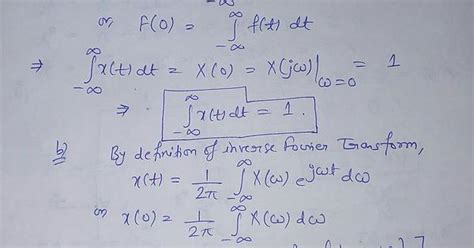 -∞
or, F(0) = ∫_{-∞}^{∞} f(t) dt
⇒ ∫_{-∞}^{∞} x(t) dt = X(0) = X(jω)|_{ω=0} = 1
⇒ ∫_{-∞}^{∞} x(t) dt = 1.
b) By definition of inverse Fourier Transform,
x(t) = 1/2π ∫_{-∞}^{∞} X(ω) e^{jωt} dω
or x(0) = 1/2π ∫_{-∞}^{∞} X(ω) dω